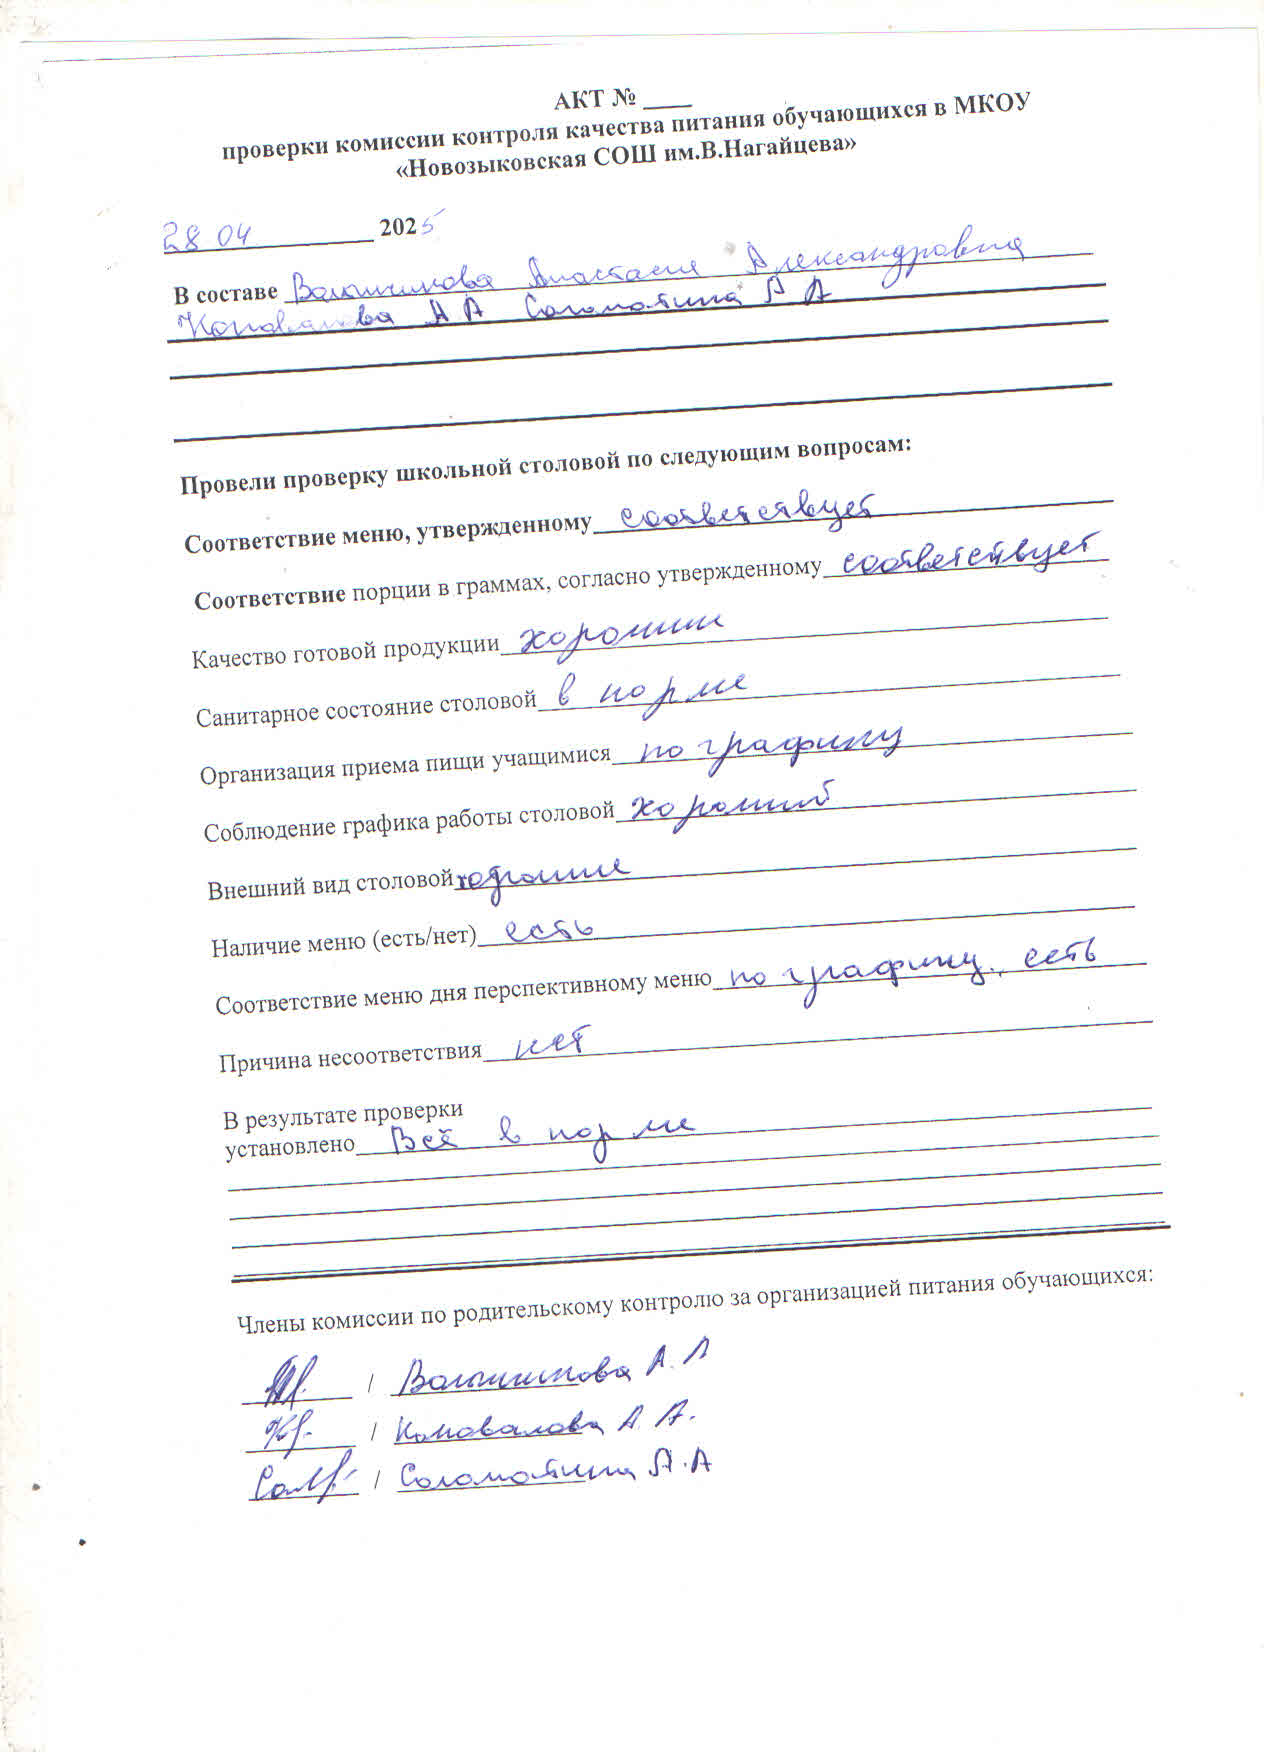 АКТ № ____
проверки комиссии контроля качества питания обучающихся в МКОУ
«Новозыковская СОШ им.В.Нагайцева»
28 04 2025
В составе Анастасия Александровна
Коновалова А А Соломатина А А
Провели проверку школьной столовой по следующим вопросам:
Соответствие меню, утвержденному соответствует
Соответствие порции в граммах, согласно утвержденному соответствует
Качество готовой продукции хорошии
Санитарное состояние столовой в норме
Организация приема пищи учащимися по графику
Соблюдение графика работы столовой хороший
Внешний вид столовой
Наличие меню (есть/нет) есть
Соответствие меню дня перспективному меню по графику, есть
Причина несоответствия нет
В результате проверки
установлено Всё в норме
Члены комиссии по родительскому контролю за организацией питания обучающихся:
/
/ Коновалова А. А.
/ Соломатина А.А